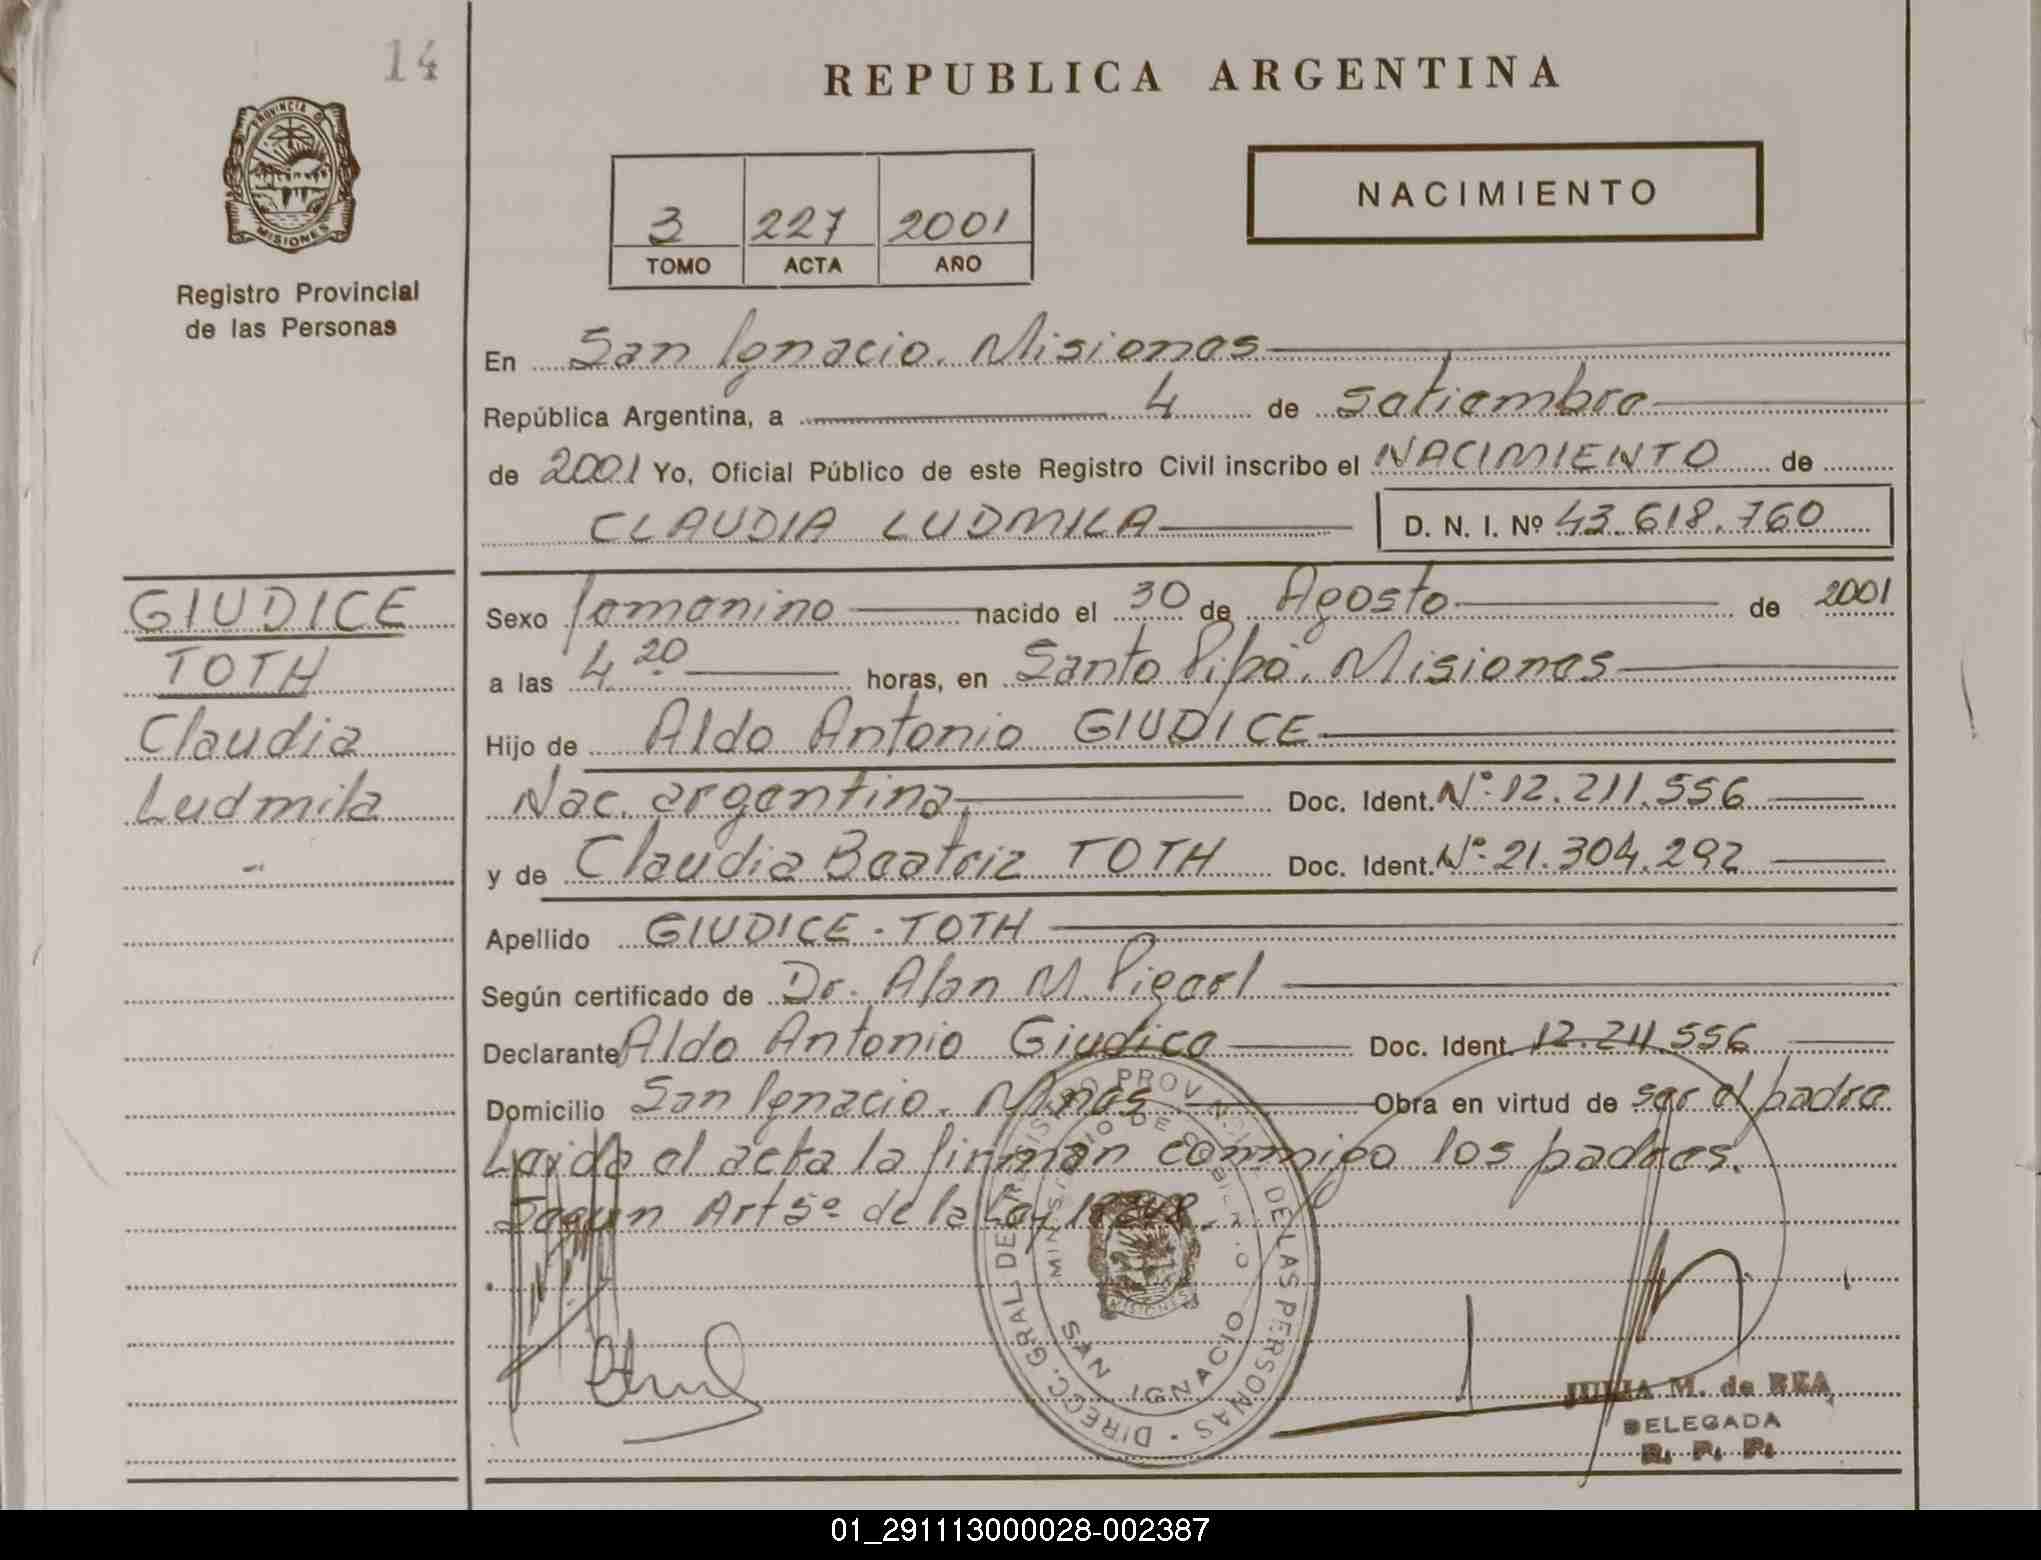 14
REPUBLICA ARGENTINA
PROVINCIA D
MISIONES
Registro Provincial
de las Personas
NACIMIENTO
3 227 2001
TOMO ACTA AÑO
En San Ignacio. Misiones
República Argentina, a 4 de setiembre
de 2001 Yo, Oficial Público de este Registro Civil inscribo el NACIMIENTO de
CLAUDIA LUDMILA D. N. I. Nº 43.618.760
GIUDICE
TOTH
Claudia
Ludmila
Sexo femenino nacido el 30 de Agosto de 2001
a las 4 20 horas, en Santo Pipó. Misiones
Hijo de Aldo Antonio GIUDICE
Nac. argentina, Doc. Ident. Nº 12.211.556
y de Claudia Beatriz TOTH Doc. Ident. Nº 21.304.292
Apellido GIUDICE - TOTH
Según certificado de Dr. Alan M.
Declarante Aldo Antonio Giudice Doc. Ident. 12.211.556
Domicilio San Ignacio. Mnes Obra en virtud de ser el padre
Leida el acta la firman conmigo los padres.
Según Art 5º de la Ley
DIRECC. GRAL DE REGISTRO PROVINCIAL DE LAS PERSONAS
MINISTERIO DE GOBIERNO
MISIONES
SAN IGNACIO
JULIA M. de REA
DELEGADA
R. P. P.
01_291113000028-002387